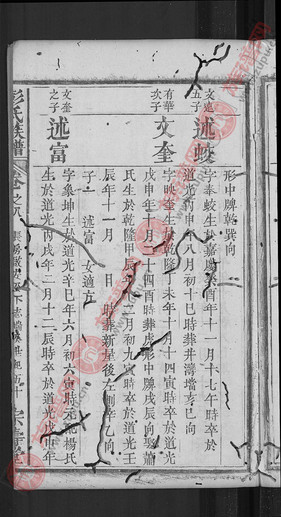 形中牌乾巽向
文遠五子 述蛟 字泰蛟生於嘉慶癸酉年十一月十七午時卒於
道光 申年八月初十巳時葬井灣墻亥巳向
有華次子 文奎 字映奎生於乾隆丁未年十月十四寅時卒於道光
戊申年十月二十四酉時葬 形中牌戌辰向娶蕭
氏生於乾隆甲 年 月初九寅時卒於道光壬
辰年十一月 日 時葬新屋後左 辛乙向
子一 述富 女適
文奎之子 述富 字象坤生於道光辛巳年六月初六寅時 楊氏
生於道光丙戌年二月十二辰時卒於道光戊 年
彭氏族譜 卷之八